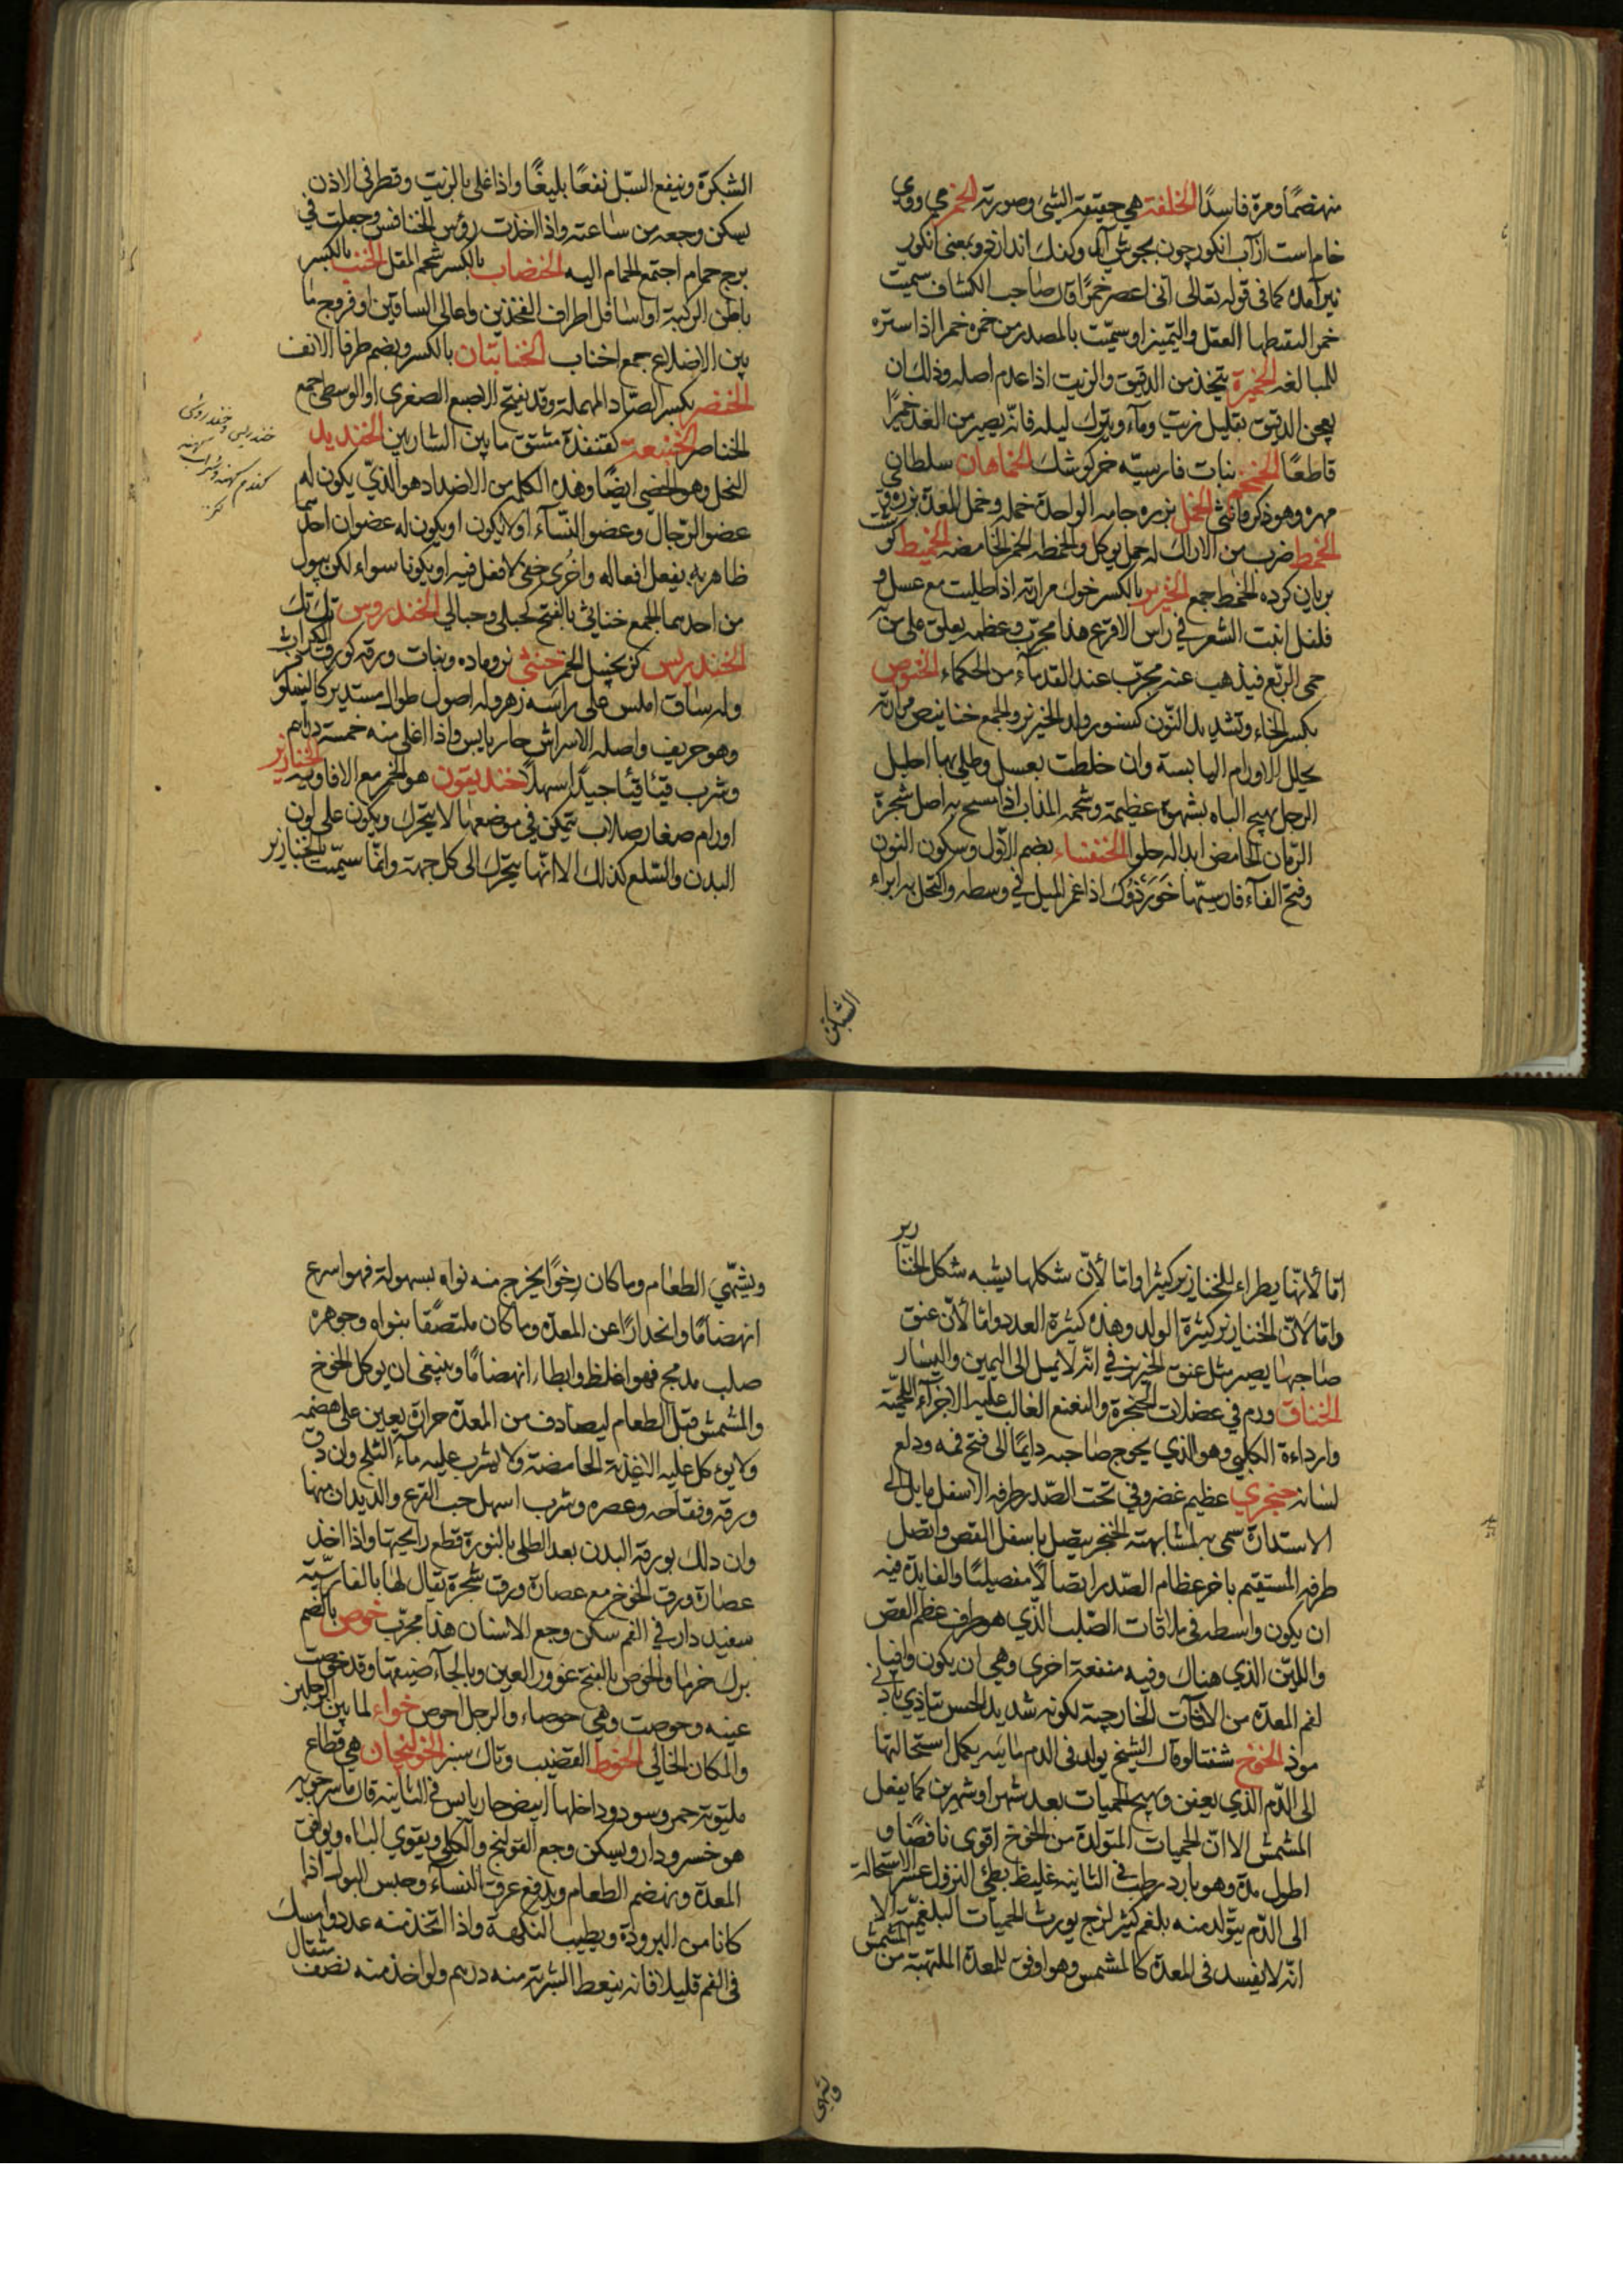 منهضمًا ومرة فاسدًا الخلفة هي حقيقة الشئ وصورته الخمر می ووی
خام است از آب انکور چون بجوش آید وکفك اندازد وبمعنی انکور
نیز آمده کما فی قوله تعالی انی اعصر خمرًا قال صاحب الکشاف سمیت
خمرا لتغطیها العقل والتمییز او سمّیت بالمصدر من خمره خمرا اذا ستره
للمبالغه الخمیرة یتخذ من الدقیق والزیت اذا عدم اصله وذلك ان
یعجن الدقیق بقلیل زیت وماء ویترك لیله فانه یصیر من الغد خمیرًا
قاطعًا الخمخم نبات فارسیّه خرکوشك الخماهان سلطانی
مهره وهو ذکر وانثی الخمل برزه جامه الواحدة خمله وخمل المعدة
الخمط ضرب من الاراك له حمل یوکل والخمطه الخمر الحامضه الخمیط کوشت
بریان کرده الخماط جمع الخنزیر بالکسر خوك مرارته اذا طلیت مع عسل و
فلفل انبت الشعر فی راس الاقرع هذا مجرّب وعظمه یعلق علی من به
حمی الربع فیذهب عنه مجرّب عند القدماء من الحکماء الخنوص
بکسر الخاء وتشدید النّون کسنور ولد الخنزیر والجمع خنانیص مرارته
یحلل الاورام الیابسة وان خلطت بعسل وطلی بها احلیل
الرجل یهیج الباه بشهوة عظیمة وشحمه المذاب اذا مسح به اصل شجرة
الرّمان الحامض ابداله حلوا الخنفساء بضم الاّول وسکون النون
وفتح الفاء فارسیّتها خَوَزدُوك اذا غمر المیل فی وسطه واکتحل به ابراء
الشبکرة
الشبکرة وینفع السّبل نفعًا بلیغًا واذا غلی بالزیت وقطر فی الاذن
یسکن وجعه من ساعته واذا اخذت رؤس الخنافس وجعلت فی
برج حمام اجتمع الحمام الیه الخضاب بالکسر شحم المقل الخنب بالکسر
باطن الرکبة او اسافل اطراف الفخذین واعالی الساقین او فروج ما
بین الاضلاع جمع اخناب الخنابتان بالکسر وبضم طرفا الانف
الخنصر بکسر الصّاد المهملة وقد یفتح الاصبع الصغری او الوسطی جمع
الخناصر الخنبعة کقنفذة مشتق ما بین الشاربین الخندید
الفحل وهو الخصی ایضًا وهذه الکلمه من الاضداد هو الذی یکون له
عضو الرّجال وعضو النّساء او لا یکون او یکون له عضوان احدهما
ظاهر به یفعل افعاله واخری خفی لا فعل فیه او یکونا سواء لکن یبول
من احدهما الجمع خناثی بالفتح کحبلی وحبالی الخندروس
الخندریس کزنجبیل الخمر خنثی نر وماده ونبات ورقه کورق الکراث
وله ساق املس علی راسه زهر وله اصول طوال مستدیر کالبلوط
وهو حریف واصله الاسراش حار یابس واذا اغلی منه خمسة دراهم
وشرب قیّأ قیئا جیدًا سهلًا خندیقون هو الخمر مع الافاویه الخنازیر
اورام صغار صلاب یتمکن فی موضعها لا یتحرك ویکون علی لون
البدن والسّلع کذلك الا انّها یتحرك الی کل جهة وانما سمّیت بالخنازیر
خندریس وخندروس
کندم کهنه وشراب کهنه
کز
امّا لأنّها یطراء للخنازیر کثیرا وامّا لأنّ شکلها یشبه شکل الخنازیر
وامّا لأنّ الخنازیر کثیرة الولد وهذه کثیرة العدد وامّا لأنّ عنق
صاحبها یصیر مثل عنق الخنزیر فی انّه لا یمیل الی الیمین والیسار
الخناق ورم فی عضلات الحنجرة والنغنغ الغالب علیه الاجزاء اللحمیّة
وارداءة الکلبی وهو الذی یحوج صاحبه دایمًا الی فتح فمه ودلع
لسانه خنجری عظیم غضروفی تحت الصّدر طرفه الاسفل مایل الی
الاستدارة سمی به لمشابهته الخنجر یتصل باسفل القص واتصل
طرفه المستقیم باخر عظام الصّدر اتصالًا مفصلیًا والفایدة فیه
ان یکون واسطه فی ملاقات الصّلب الذّی هو طرف عظم القص
واللیّن الذی هناك وفیه منفعة اخری وهی ان یکون واقیا
لفم المعدة من الافات الخارجیة لکونه شدید الحس یتاذی بادنی
موذ الخوخ شفتالو قال الشیخ یولد فی الدم مائیه یکمل استحالتها
الی الدّم الذی یعفن ویهیج الحمیات بعد شهر او شهرین کما یفعل
المشمش الا انّ الحمیات المتولدة من الخوخ اقوی نافضًا و
اطول مدة وهو بارد رطب فی الثانیه غلیظ بطئ النزول عسر الاستحالة
الی الدّم یتولد منه بلغم کثیر لزج یورث الحمیات البلغمیّة الا
انّه لا یفسد فی المعدة کالمشمس وهو اوفق للمعدة الملتهبة من المشمش
ویشهی
ویشهّی الطعام وما کان رخوًا یخرج منه نواه بسهولة فهو اسرع
انهضامًا وانحدارًا عن المعدة وما کان ملتصقًا بنواه وجوهره
صلب مدمج فهو اغلظ وابطاء انهضامًا وینبغی ان یوکل الخوخ
والمشمش قبل الطعام لیصادف من المعدة حرارة یعین علی هضمه
ولا یوءکل علیه الاغذیة الحامضة ولا یشرب علیه ماء الثلج وان دق
ورقه وفقاحه وعصره وشرب اسهل حب القرع والدیدان منها
وان دلك بورقه البدن بعد الطلی بالنورة قطع رایحتها واذا اخذ
عصارة ورق الخوخ مع عصارة ورق شجرة یقال لها بالفارسیّة
سفید دار فی الفم سکن وجع الاسنان هذا مجرّب خوص بالضم
برك خرما والخوص بالفتح غوور العین وبالحاء ضیقها وقد خوصت
عینه وحوصت وهی حوصاء والرجل احوص خواء لما بین الرجلین
والمکان الخالی الخوط القضیب وتاك سبز الخولنجان هی قطاع
ملتویة حمر وسود وداخلها ابیض حار یابس فی الثانیه قال ماسرجویه
هو خسرو دارو یسکن وجع القولنج والکلی ویقوی الباه ویوافق
المعدة ویهضم الطعام ویدفع عرق النساء وحبس البول اذا
کانا من البرودة ویطیب النکهة واذا اتخذ منه عدد وامسك
فی الفم قلیلا فانه ینعظ الشربة منه درهم ولو اخذ منه نصف مثقال